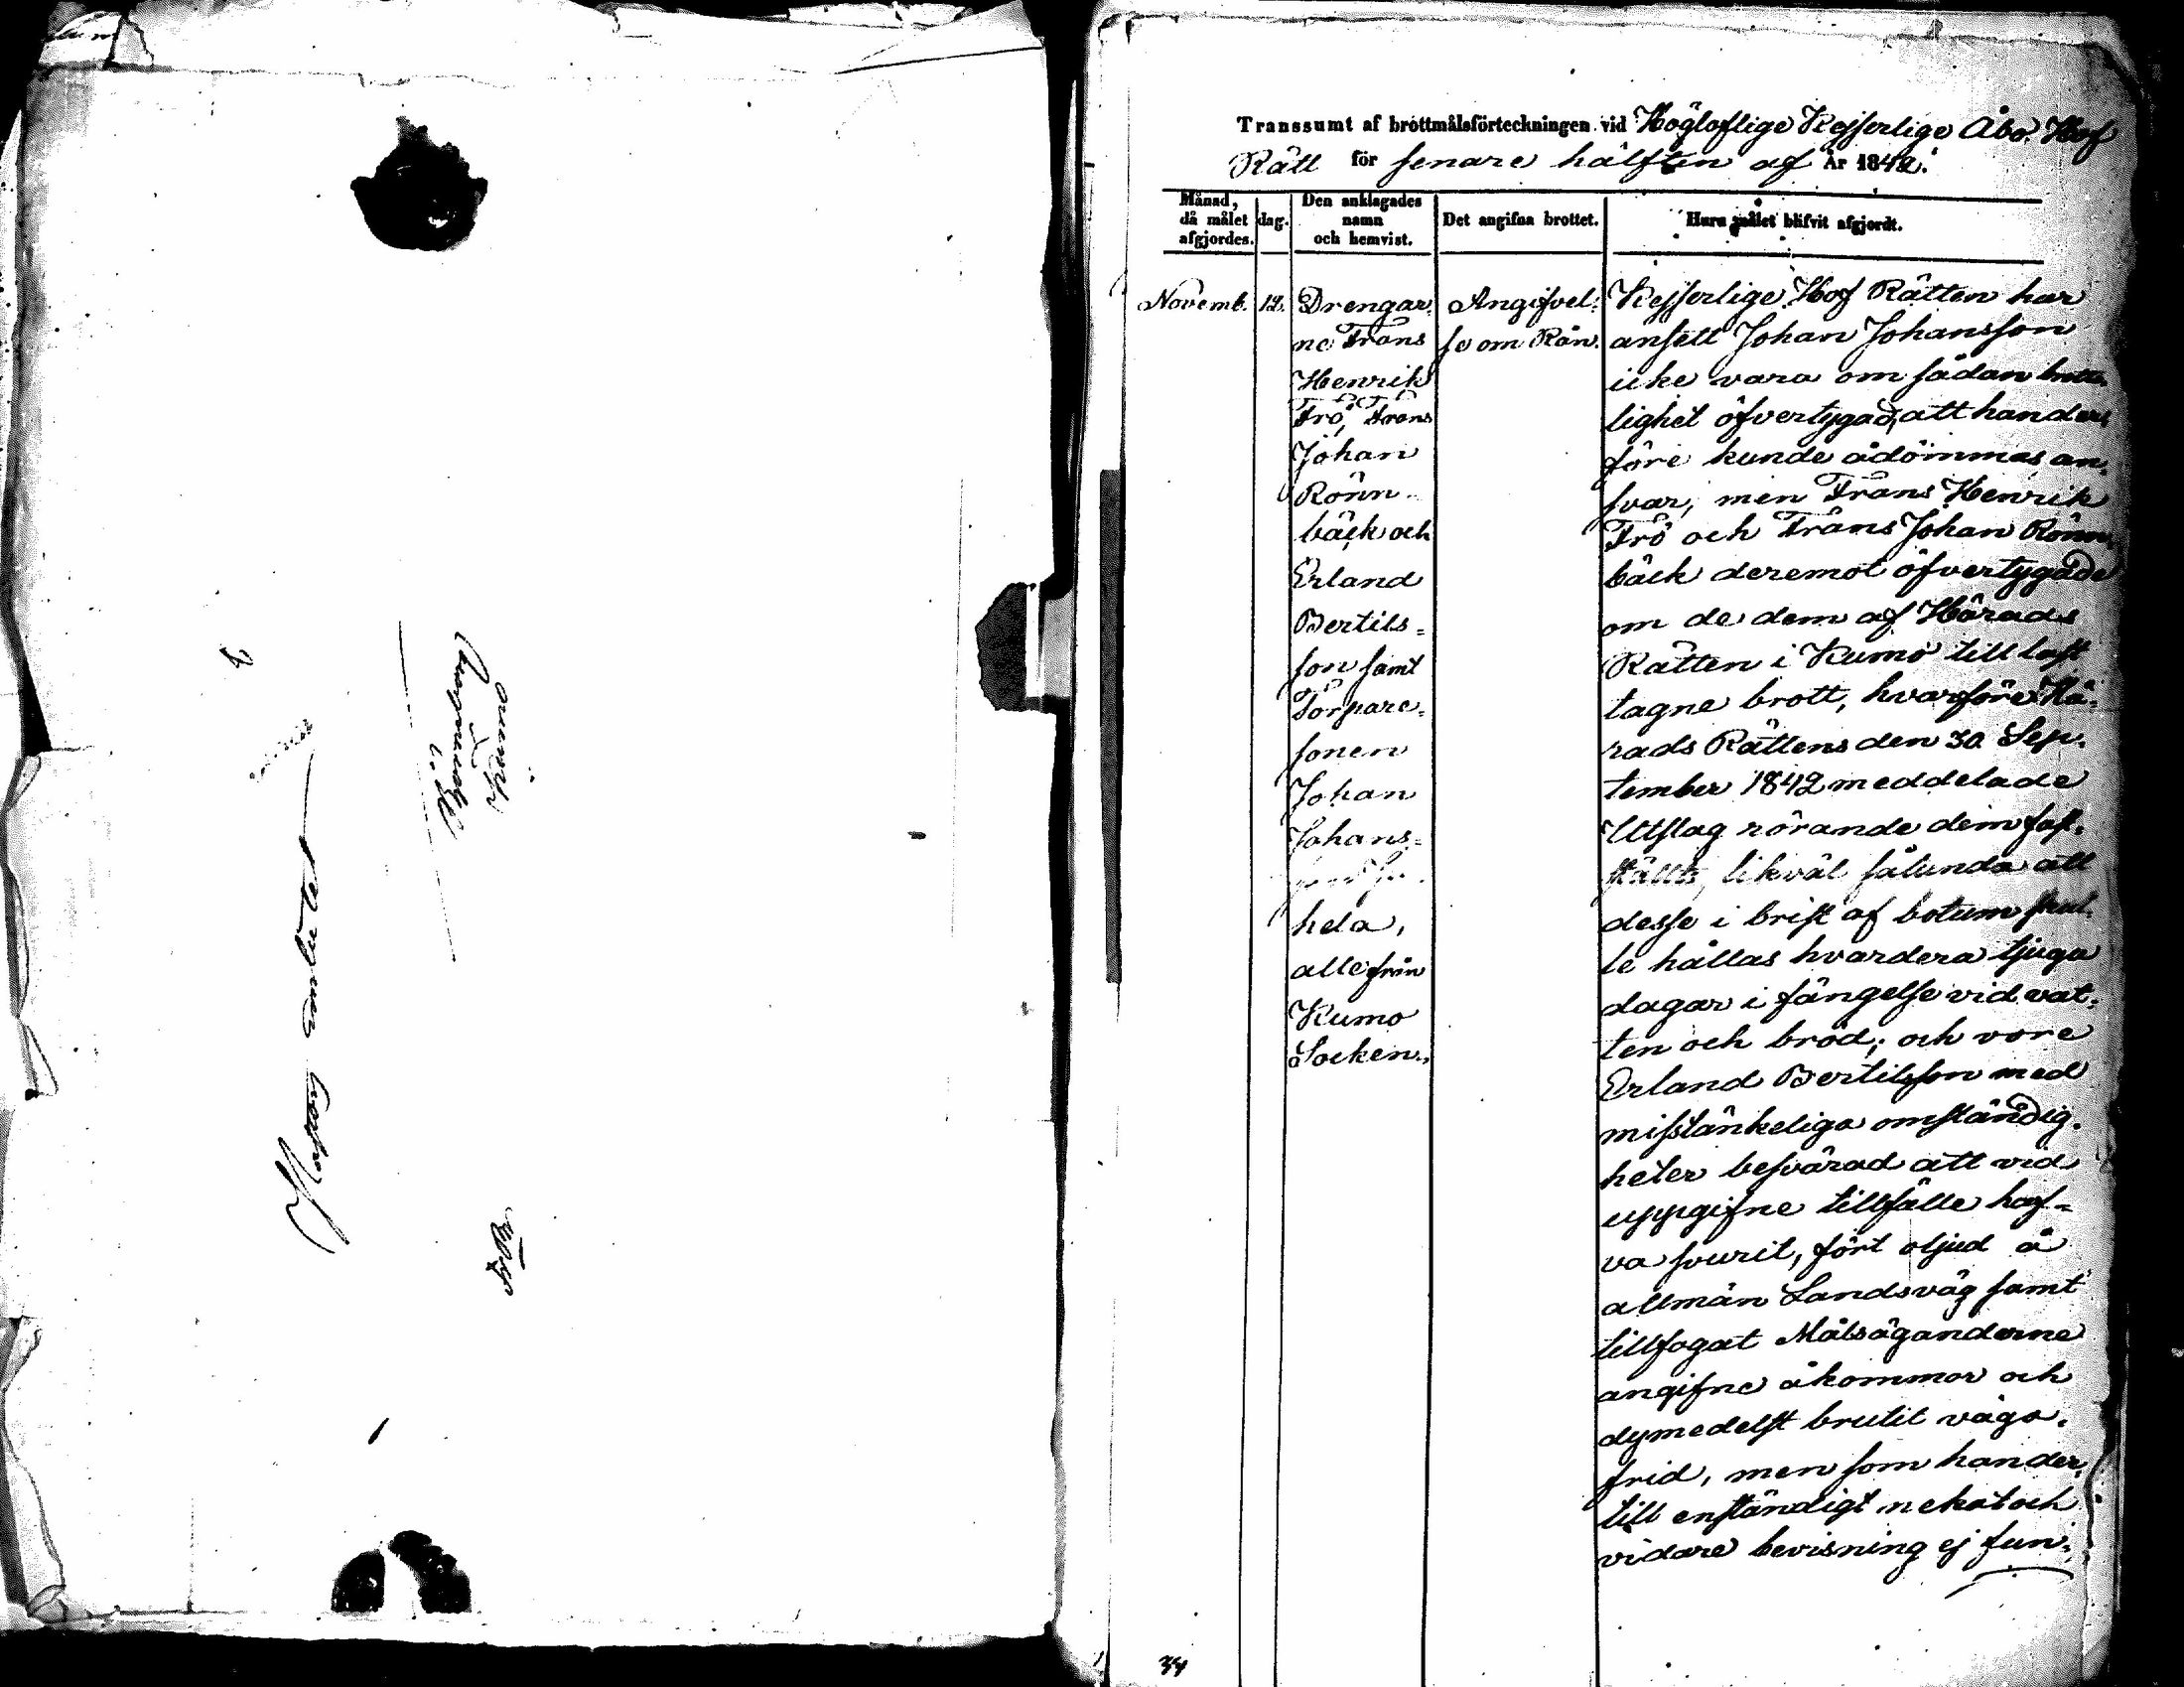 Pastors embetet
i
Kumo
Transsumt af brottmålsförteckningen vid Högloflige Kejserlige Åbo Hof
Rätt för senare hälften af År 1842.
Månad,
då målet
afgjordes.
dag.
Den anklagades
namn
och hemvist.
Det angifna brottet.
Huru målet blifvit afgjordt.
Novemb. 12.
Drengar-
ne Frans
Henrik
Frö, Frans
Johan
Rönn-
bäck och
Erland
Bertils=
son samt
Torpare=
sonen
Johan
Johans=
hela,
alle från
Kumo
Socken.
Angifvel=
se om Rån.
Kejserlige Hof Rätten har
ansett Johan Johansson
icke vara om sådan brotts-
lighet öfvertygad, att han der-
före kunde ådömmas an-
svar, men Frans Henrik
Frö och Frans Johan Rönn-
bäck deremot öfvertygade
om de dem af Härads
Rätten i Kumo till last
tagne brott, hvarföre Hä-
rads Rättens den 30 Sep-
tember 1842 meddelade
Utslag rörande dem fast-
ställts, likväl sålunda att
desse i brist af botum skul-
le hållas hvardera tjugo
dagar i fängelse vid vat-
ten och bröd; och vore
Erland Bertilsson med
misstänkeliga omständig-
heter besvärad att vid
uppgifne tillfälle haf-
va svurit, fört oljud å
allmän Landsväg samt
tillfogat Målsäganderne
angifne åkommor och
dymedelst brutit väga-
frid, men som han der-
till enständigt nekat och
vidare bevisning ej fun-
34